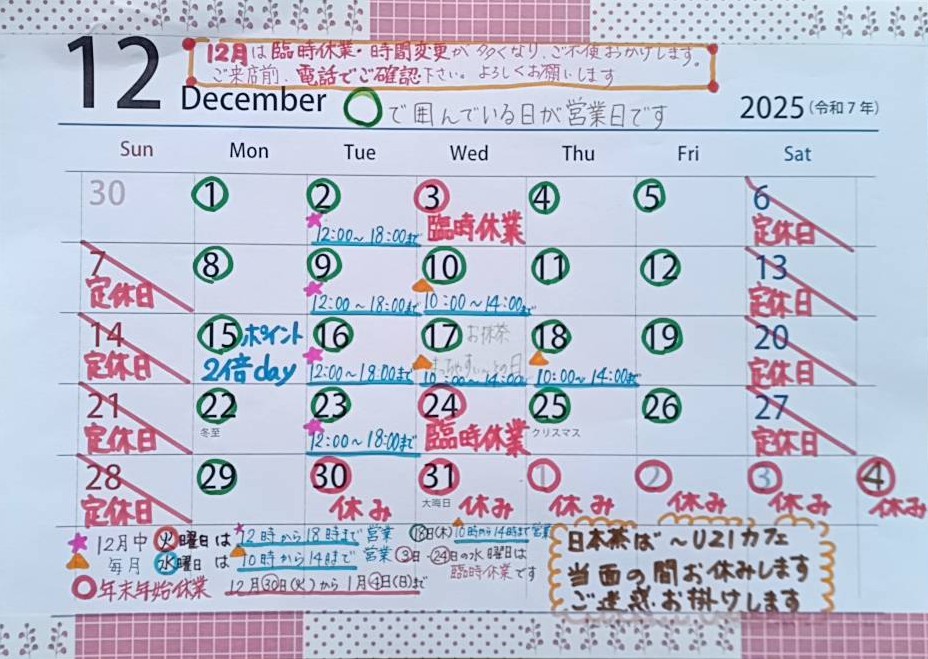 12月は臨時休業・時間変更が多くなり、ご不便おかけします。
ご来店前、電話でご確認下さい。よろしくお願いします
12 December
○で囲んでいる日が営業日です
2025(令和7年)
Sun Mon Tue Wed Thu Fri Sat
30 1 2 3 4 5 6
12:00～18:00まで 臨時休業 定休日
7 8 9 10 11 12 13
定休日 12:00～18:00まで 10:00～14:00まで 定休日
14 15 ポイント 16 17 お抹茶 18 19 20
定休日 2倍day 12:00～18:00まで 10:00～14:00まで 10:00～14:00まで 定休日
21 22 23 24 25 26 27
定休日 冬至 12:00～18:00まで 臨時休業 クリスマス 定休日
28 29 30 31 1 2 3 4
定休日 休み 大晦日 休み 休み 休み 休み 休み
★12月中 火曜日は 12時から18時まで営業 18日(木)10時から14時まで営業
毎月 水曜日は 10時から14時まで 営業 3日・24日の水曜日は
臨時休業です
○年末年始休業 12月30日(火)から1月4日(日)まで
日本茶ば～U21カフェ
当面の間お休みします
ご迷惑お掛けします